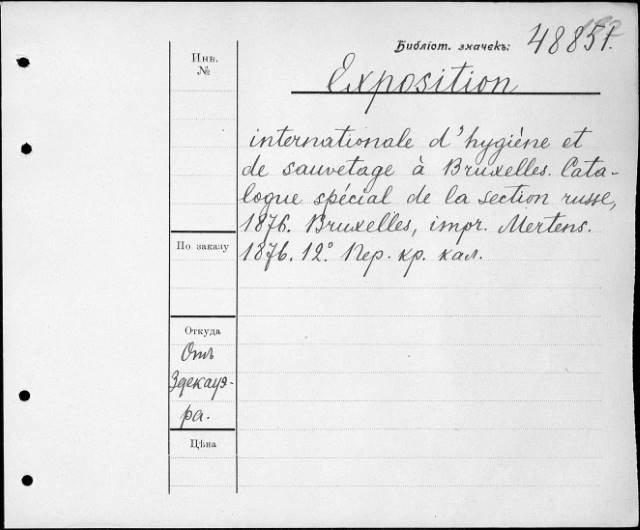 Библіот. значекъ: 48851.
Инв.
№
Exposition
internationale d'hygiène et
de sauvetage à Bruxelles. Cata-
logue spécial de la section russe,
1876. Bruxelles, impr. Mertens.
1876. 12°. Пер. кр. кал.
По заказу
Откуда
Отъ
Здекауэ-
ра.
Цѣна